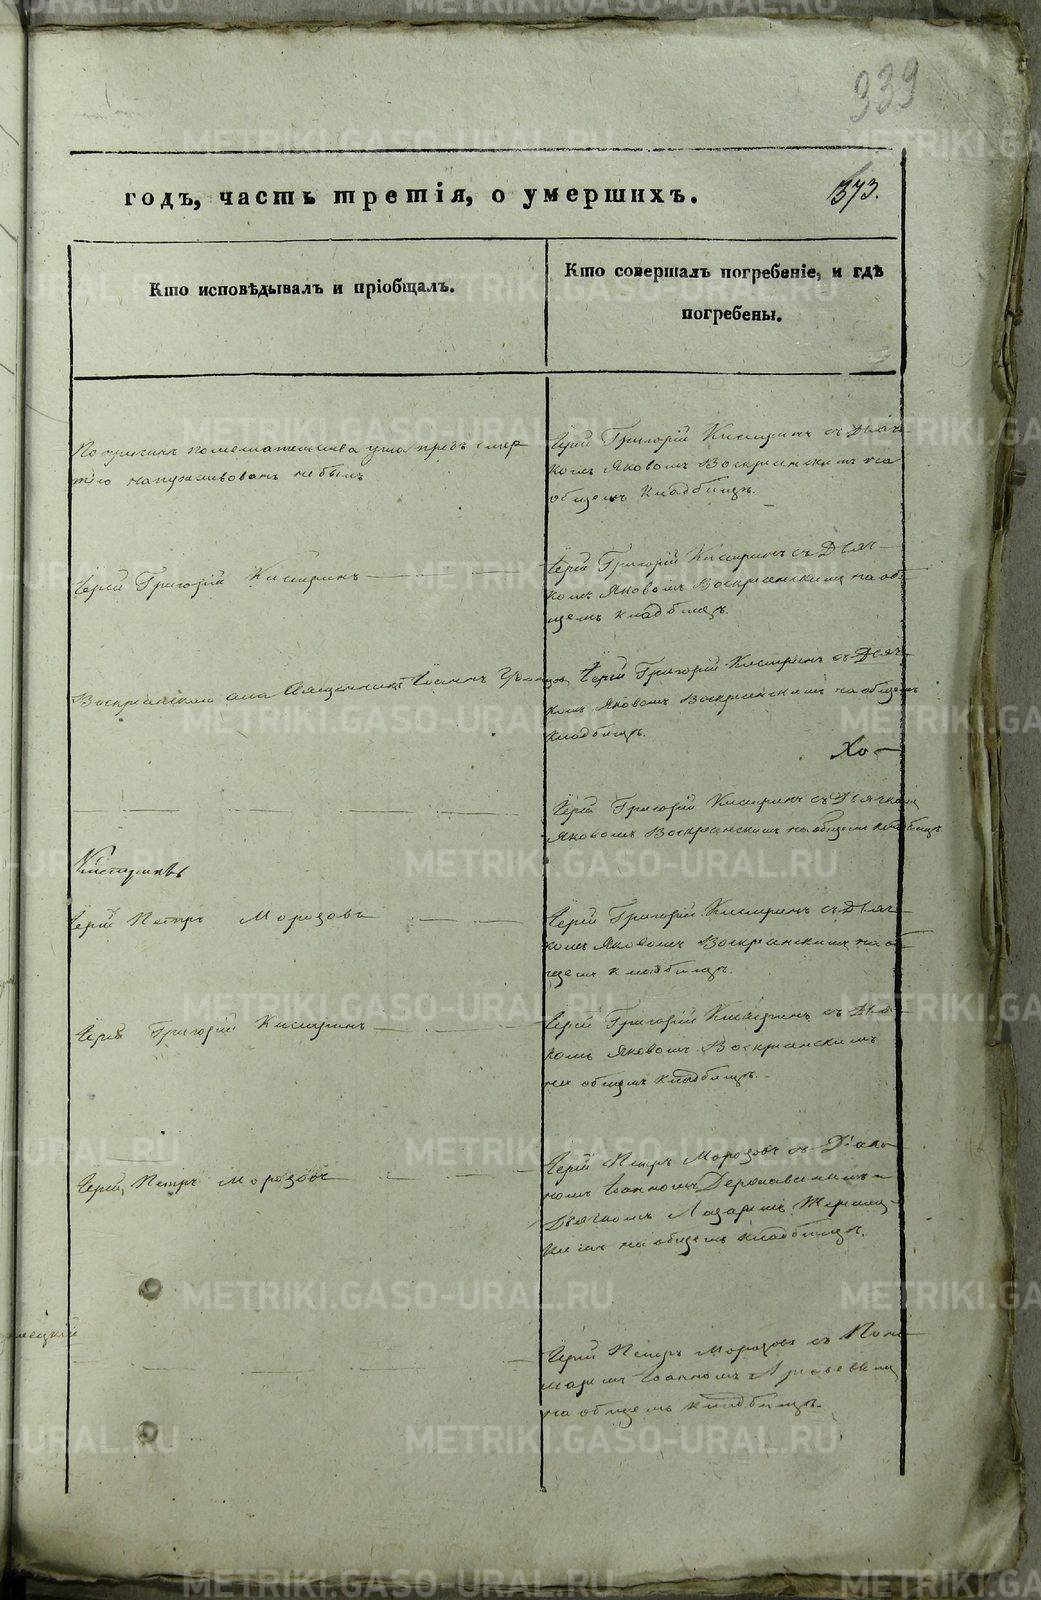 339
годъ, часть третія, о умершихъ.
373.
Кто исповѣдывалъ и пріобщалъ.
Кто совершалъ погребеніе, и гдѣ
погребены.
По причинѣ помешательства ума предъ смер
тію напутствованъ не былъ
Іерей Григорій Кистринъ съ Дьяч
комъ Яковомъ Воскресенскимъ на
общемъ кладбищѣ.
Іерей Григорій Кистринъ
Іерей Григорій Кистринъ съ Дьяч
комъ Яковомъ Воскресенскимъ на об
щемъ кладбищѣ.
Священникъ Іоаннъ
Іерей Григорій Кистринъ съ Дьяч
комъ Яковомъ Воскресенскимъ на общемъ
кладбищѣ.
Хо
Іерей Григорій Кистринъ съ Дьячкомъ
Яковомъ Воскресенскимъ на общемъ кладбищѣ.
Іерей Петръ Морозовъ
Іерей Григорій Кистринъ съ Дьяч
комъ Яковомъ Воскресенскимъ на об
щемъ кладбищѣ.
Іерей Григорій Кистринъ
Іерей Григорій Кистринъ съ Дья
комъ Яковомъ Воскресенскимъ
на общемъ кладбищѣ.
Іерей Петръ Морозовъ
Іерей Петръ Морозовъ съ Діако
номъ Іоанномъ
Дьячкомъ
на общемъ кладбищѣ.
Іерей Петръ Морозовъ съ Поно
маремъ Іоанномъ
на общемъ кладбищѣ.
METRIKI.GASO-URAL.RU